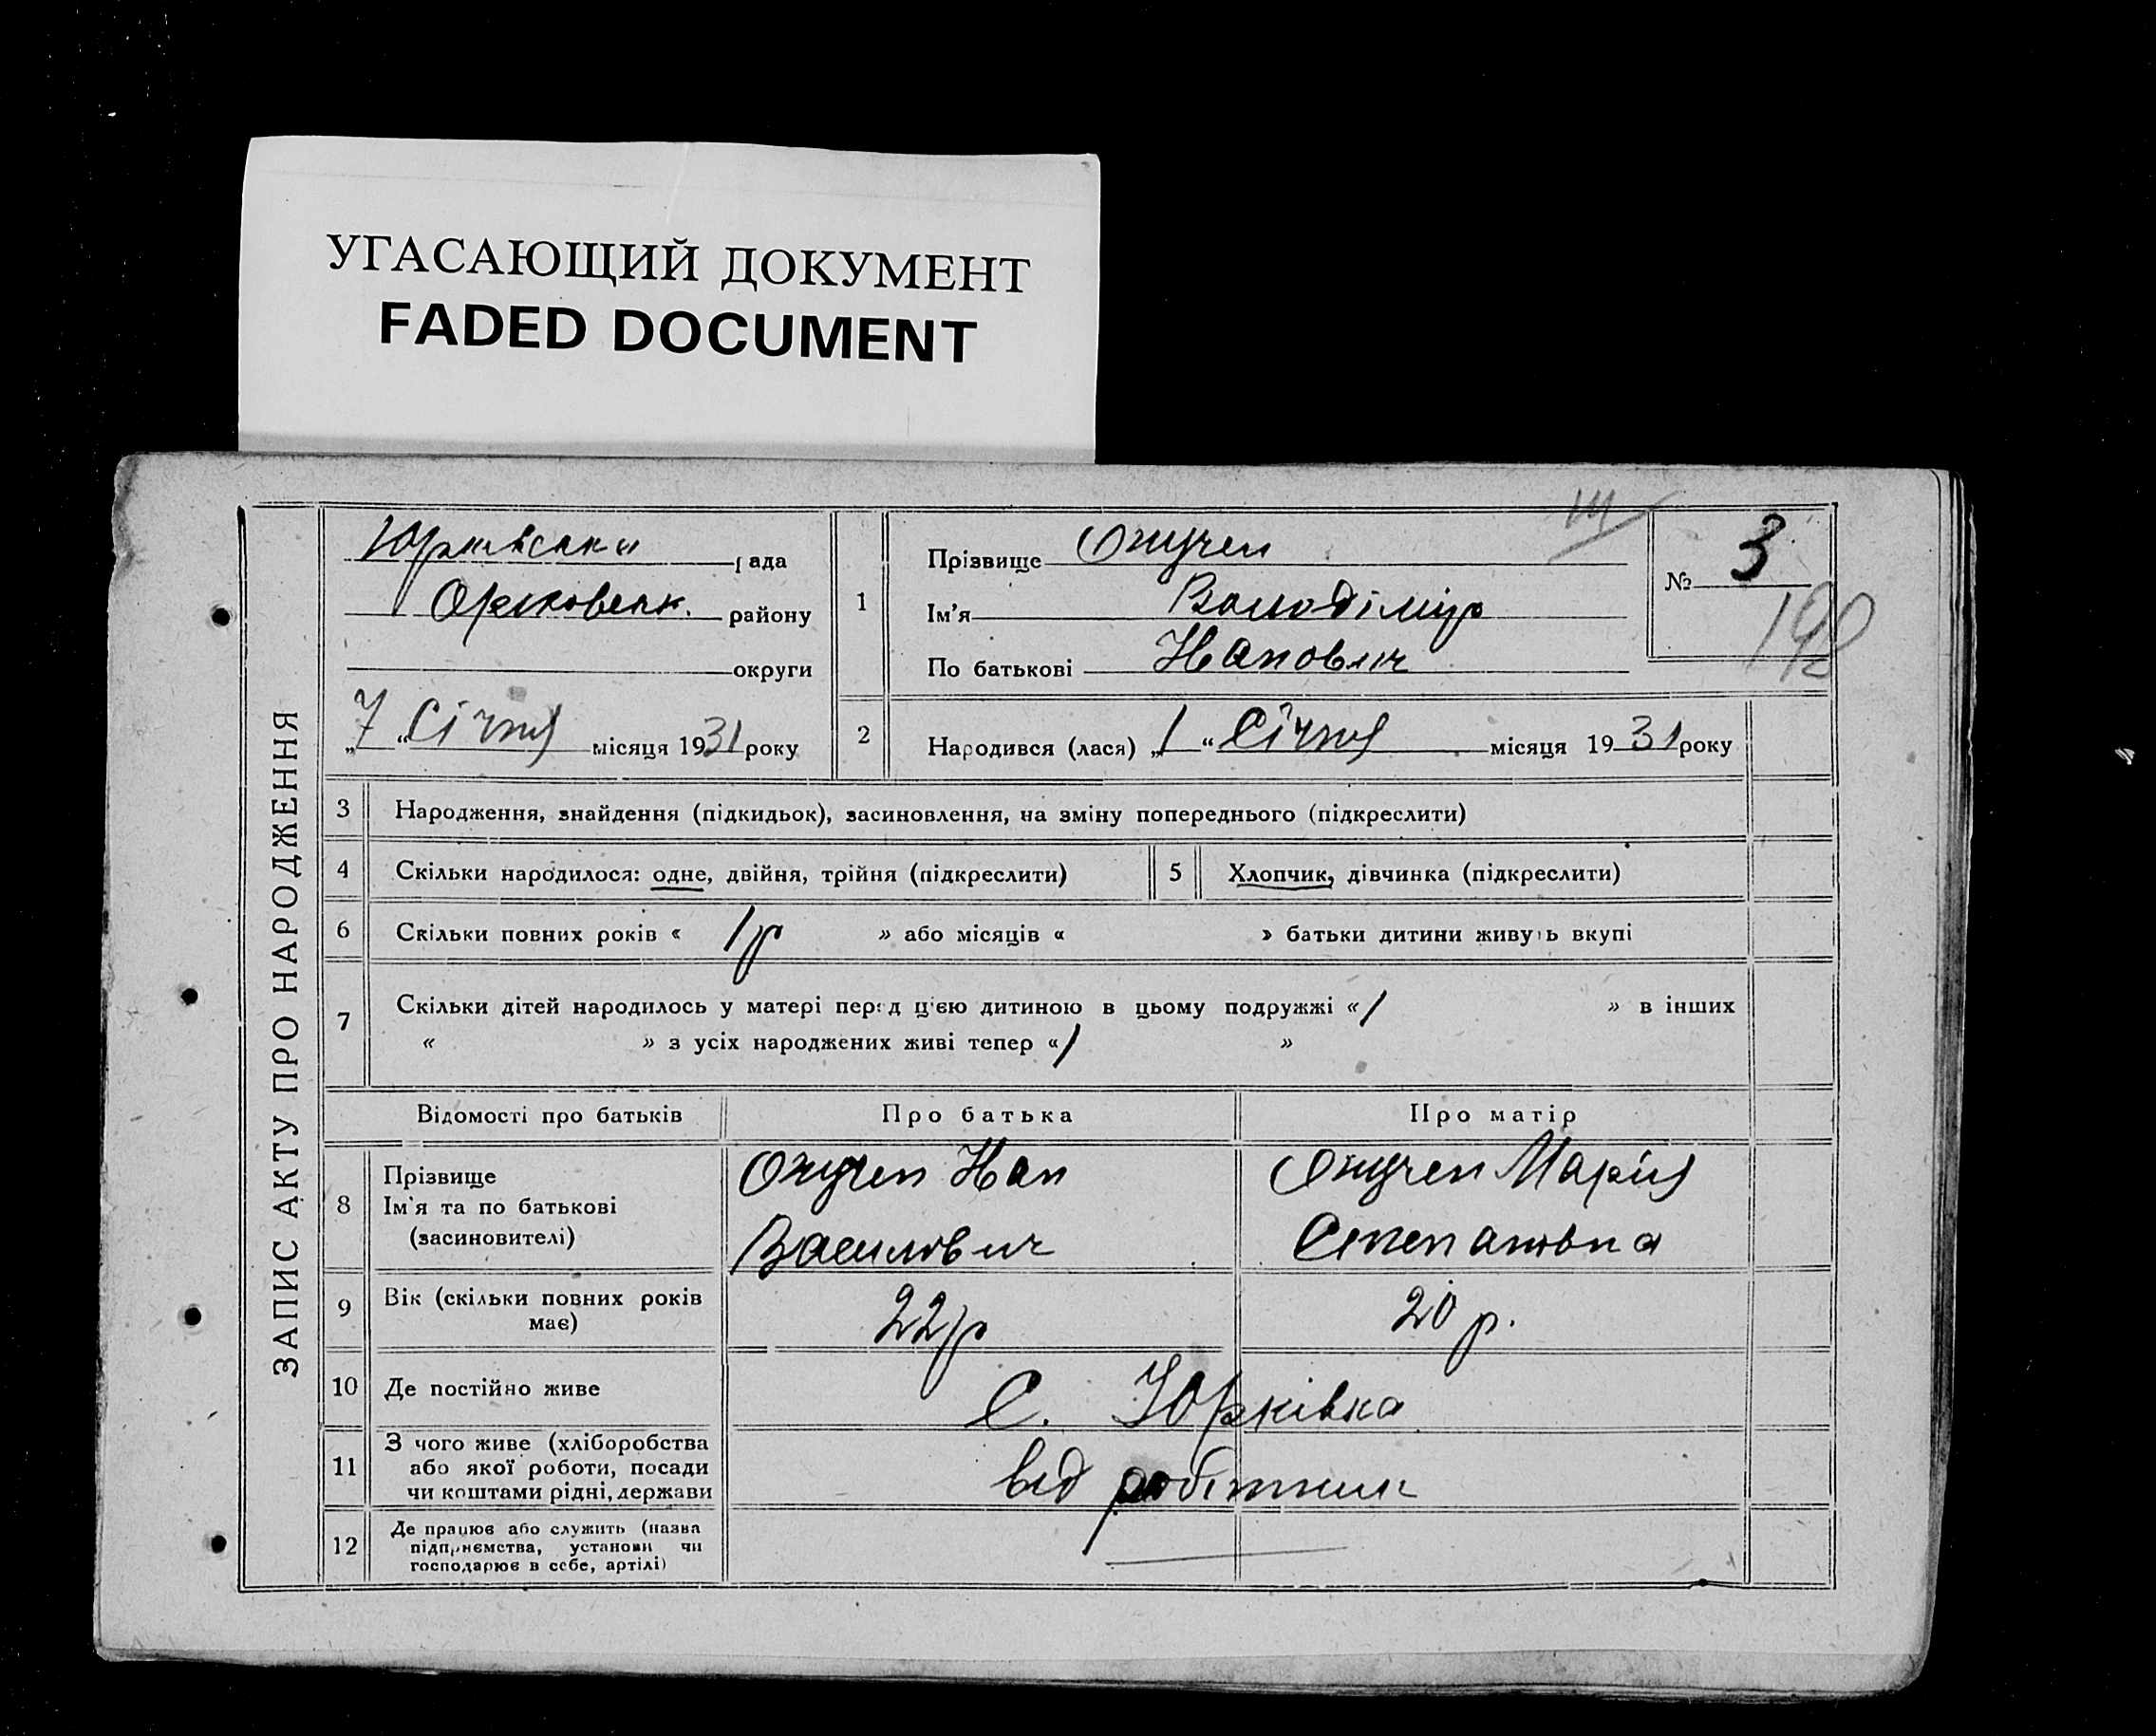 УГАСАЮЩИЙ ДОКУМЕНТ
FADED DOCUMENT
ЗАПИС АКТУ ПРО НАРОДЖЕННЯ
Юрківська рада
району
округи
„7“ Січня місяця 1931 року
1
Прізвище
Ім'я Володімір
По батькові
№ 3
190
2
Народився (лася) „1“ Січня місяця 1931 року
3 Народження, знайдення (підкидьок), засиновлення, на зміну попереднього (підкреслити)
4 Скільки народилося: одне, двійня, трійня (підкреслити)
5 Хлопчик, дівчинка (підкреслити)
6 Скільки повних років « 1р » або місяців « » батьки дитини живуть вкупі
7 Скільки дітей народилось у матері перед цією дитиною в цьому подружжі « 1 » в інших
« » з усіх народжених живі тепер « 1 »
Відомості про батьків Про батька Про матір
8 Прізвище
Ім'я та по батькові
(засиновителі)
Василович
Марія
Степановна
9 Вік (скільки повних років
має)
22р 20 р.
10 Де постійно живе С. Юрківка
11 З чого живе (хліборобства
або якої роботи, посади
чи коштами рідні, держави
від робітник
12 Де працює або служить (назва
підприємства, установи чи
господарює в себе, артілі)